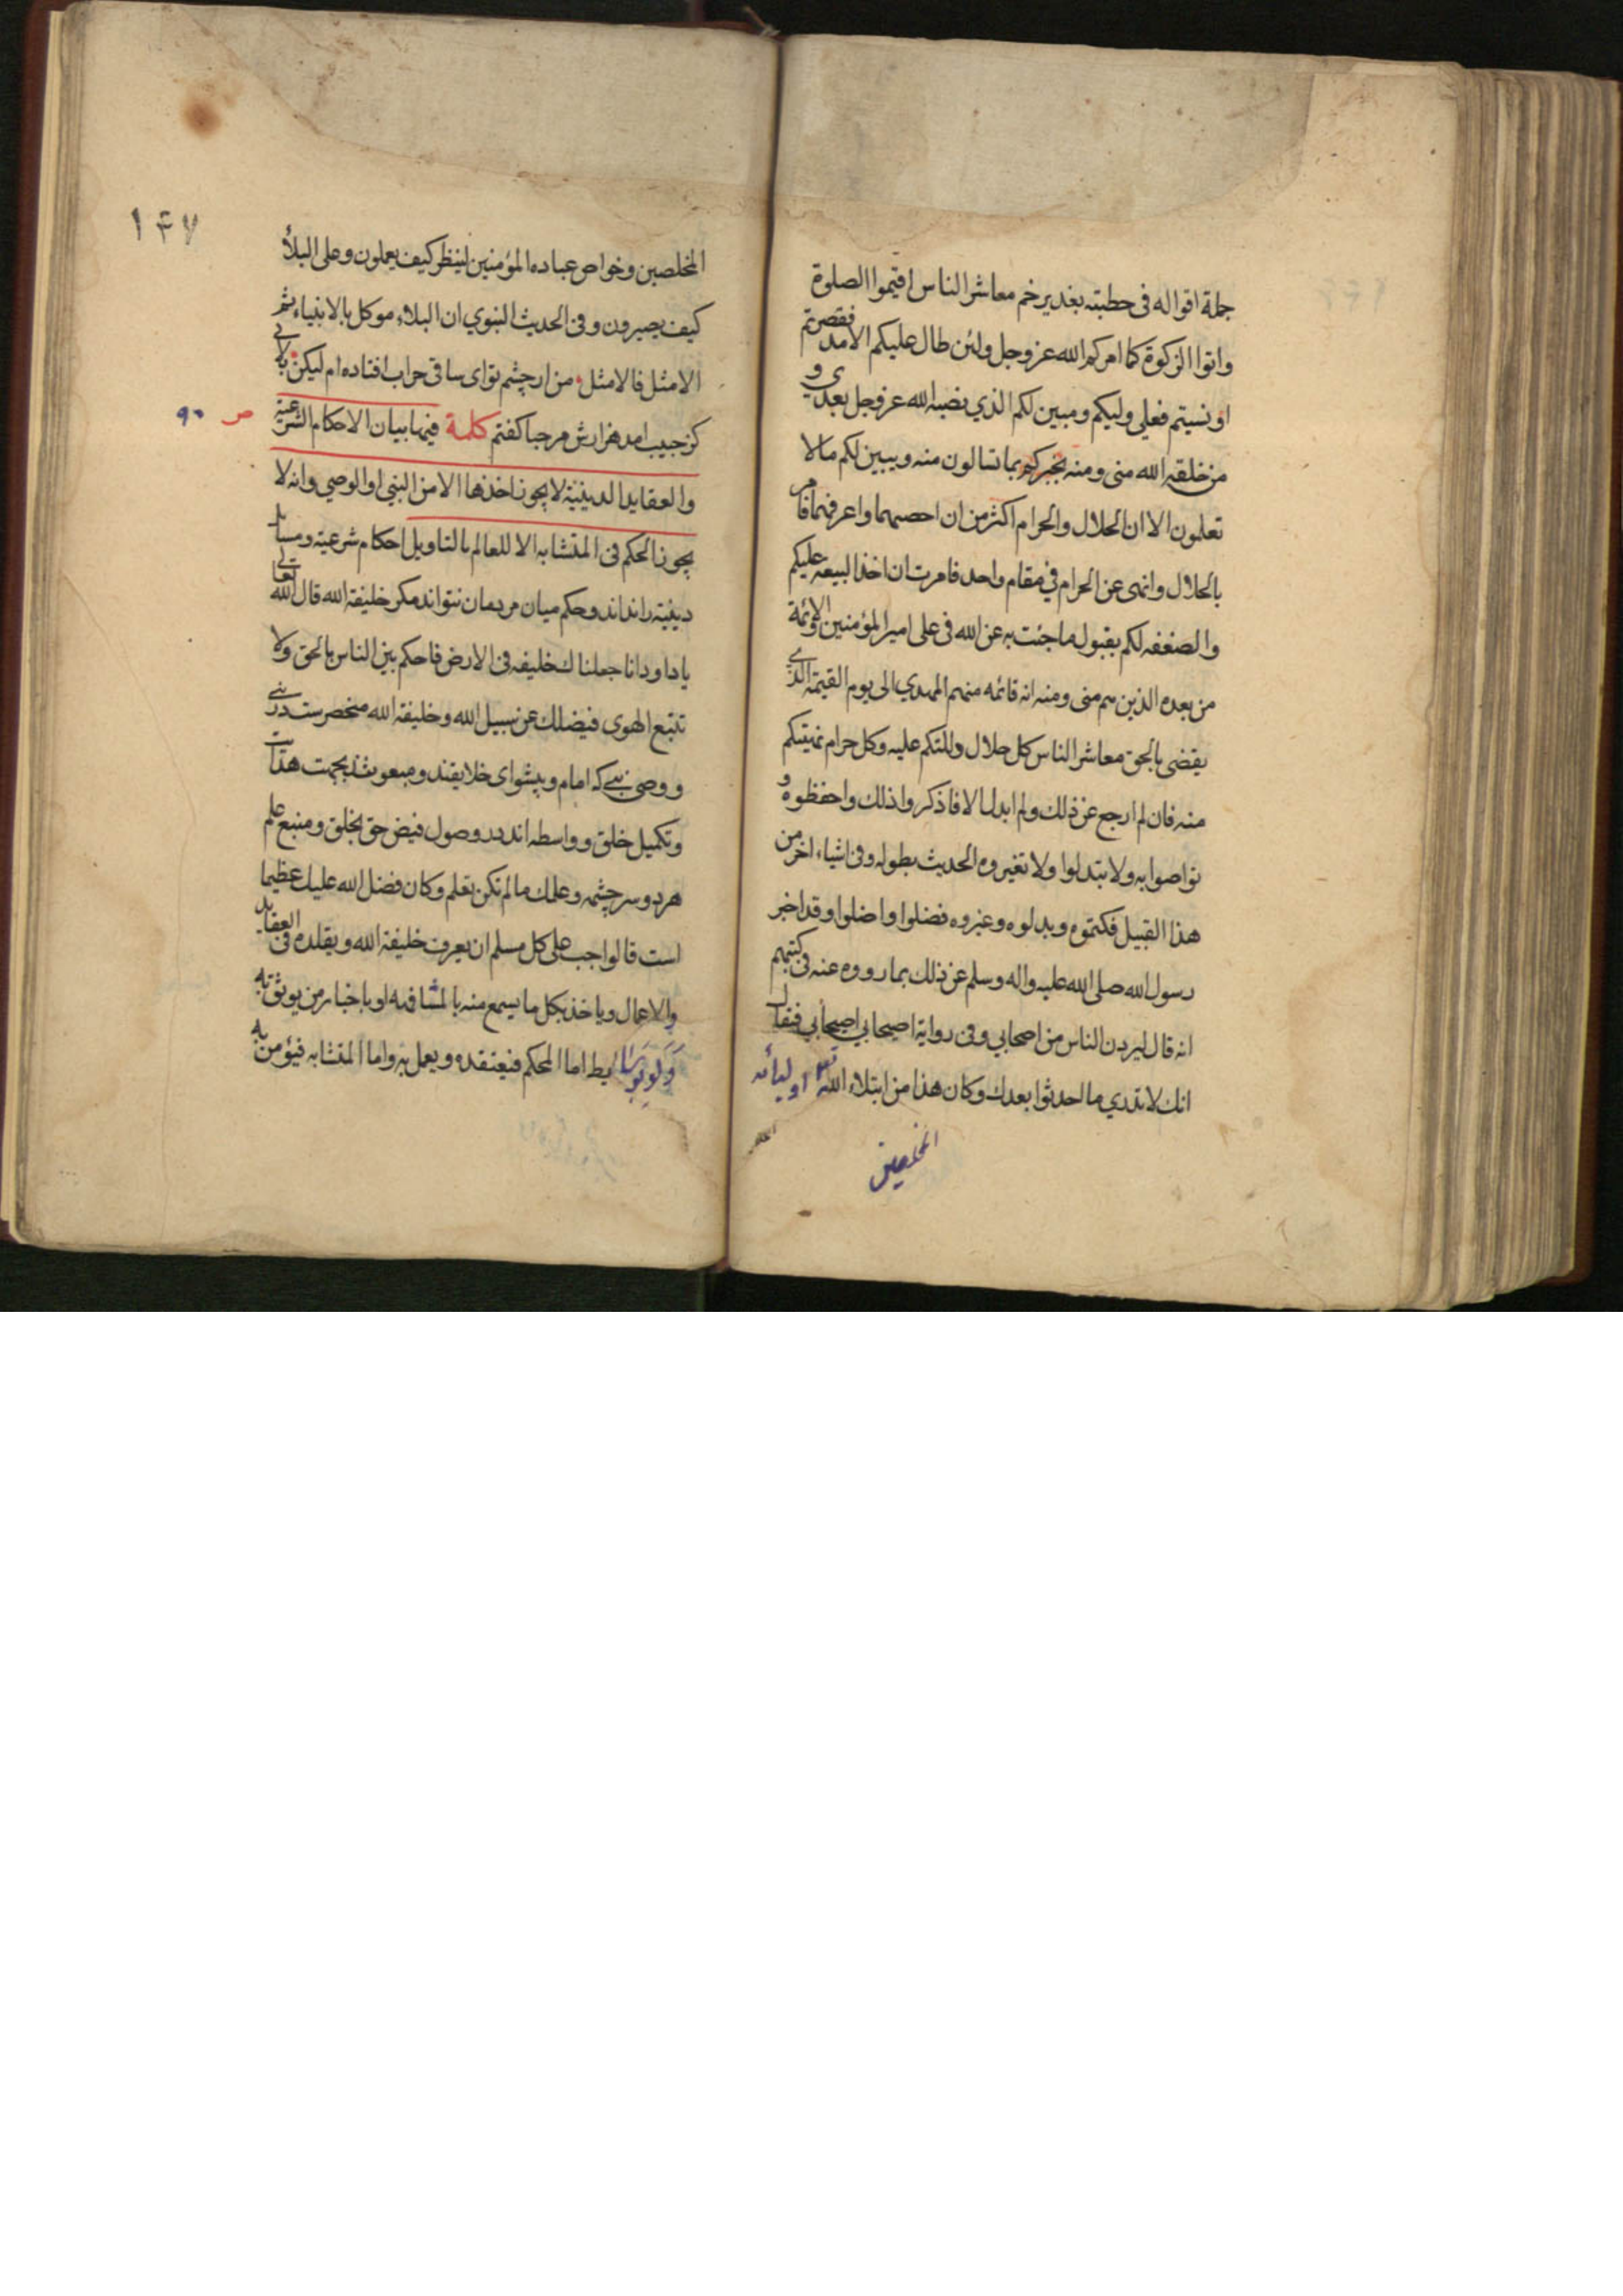 جملة اقواله فى خطبته بغدير خم معاشر الناس اقيموا الصلوة
واتوا الزكوة كما امركم الله عز وجل ولئن طال عليكم الامد فقصرتم
او نسيتم فعلي وليكم ومبين لكم الذي نصبه الله عز وجل بعدي و
من خلقه الله منى ومنه يخبركم بما تسالون منه ويبين لكم مالا
تعلمون الا ان الحلال والحرام اكثر من ان احصيهما واعرفهما فامر
بالحلال وانهى عن الحرام في مقام واحد فامرت ان اخذ البيعه عليكم
والصفقه لكم بقبول ما جئت به عن الله فى على امير المؤمنين والائمة
من بعده الذين هم منى ومنه انه قائمه منهم المهدي الى يوم القيمة الذي
يقضى بالحق معاشر الناس كل حلال دللتكم عليه وكل حرام نهيتكم
منه فان لم ارجع عن ذلك ولم ابدل الا فاذكروا ذلك واحفظوه و
تواصوا به ولا تبدلوا ولا تغيروه الحديث بطوله وفى اشياء اخر من
هذا القبيل فكتموه وبدلوه وغيروه فضلوا واضلوا وقد اخبر
رسول الله صلى الله عليه واله وسلم عن ذلك بما رووه عنه فى كتبهم
انه قال ليردن الناس من اصحابي وفى رواية اصيحابي اصيحابي فيقال
انك لا تدري ما احدثوا بعدك وكان هذا من ابتلاء الله تع اوليائه
المخلصين
١۴٧
المخلصين وخواص عباده المؤمنين لينظر كيف يعملون وعلى البلأ
كيف يصبرون وفى الحديث النبوي ان البلاء موكل بالانبياء ثم
الامثل فالامثل من ار چشم تواى ساقى خراب افتاده ام ليكن بلائى
كز حبيب امد هزارش مرحبا كفتم كلمة فيها بيان الاحكام الشرعية
ص ٩٠
والعقايد الدينية لا يجوز اخذها الا من النبي او الوصي وانه لا
يجوز الحكم فى المتشابه الا للعالم بالتاويل احكام شرعيه ومسايل
دينيه را نداند وحكم ميان مردمان نتواند مكر خليفة الله قال الله تعالى
يا داود انا جعلناك خليفه فى الارض فاحكم بين الناس بالحق ولا
تتبع الهوى فيضلك عن سبيل الله وخليفة الله منحصرست در نبي
ووصى نبي كه امام وپيشواى خلايقند ومبعوث بجهت هدايت
وتكميل خلق وواسطه اند در وصول فيض حق بخلق ومنبع علم
هر دو سرچشمه وعلمك مالم تكن تعلم وكان فضل الله عليك عظيما
است فالواجب على كل مسلم ان يعرف خليفة الله ويقلده فى العقايد
والاعمال وياخذ بكل ما يسمع منه بالمشافهه او باخبار من يوثق به
ولو بوسايط اما المحكم فيعتقده ويعمل به واما المتشابه فيؤمن به